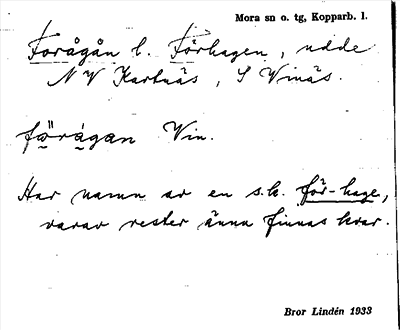 Mora sn o. tg, Kopparb. l.
Forågån l. Förhagen, udde
NV Karlnäs, S Vinäs.
fö̱rå̱gan Vin.
Har namn av en s.k. för-hage,
varav rester ännu finnas kvar.
Bror Lindén 1933